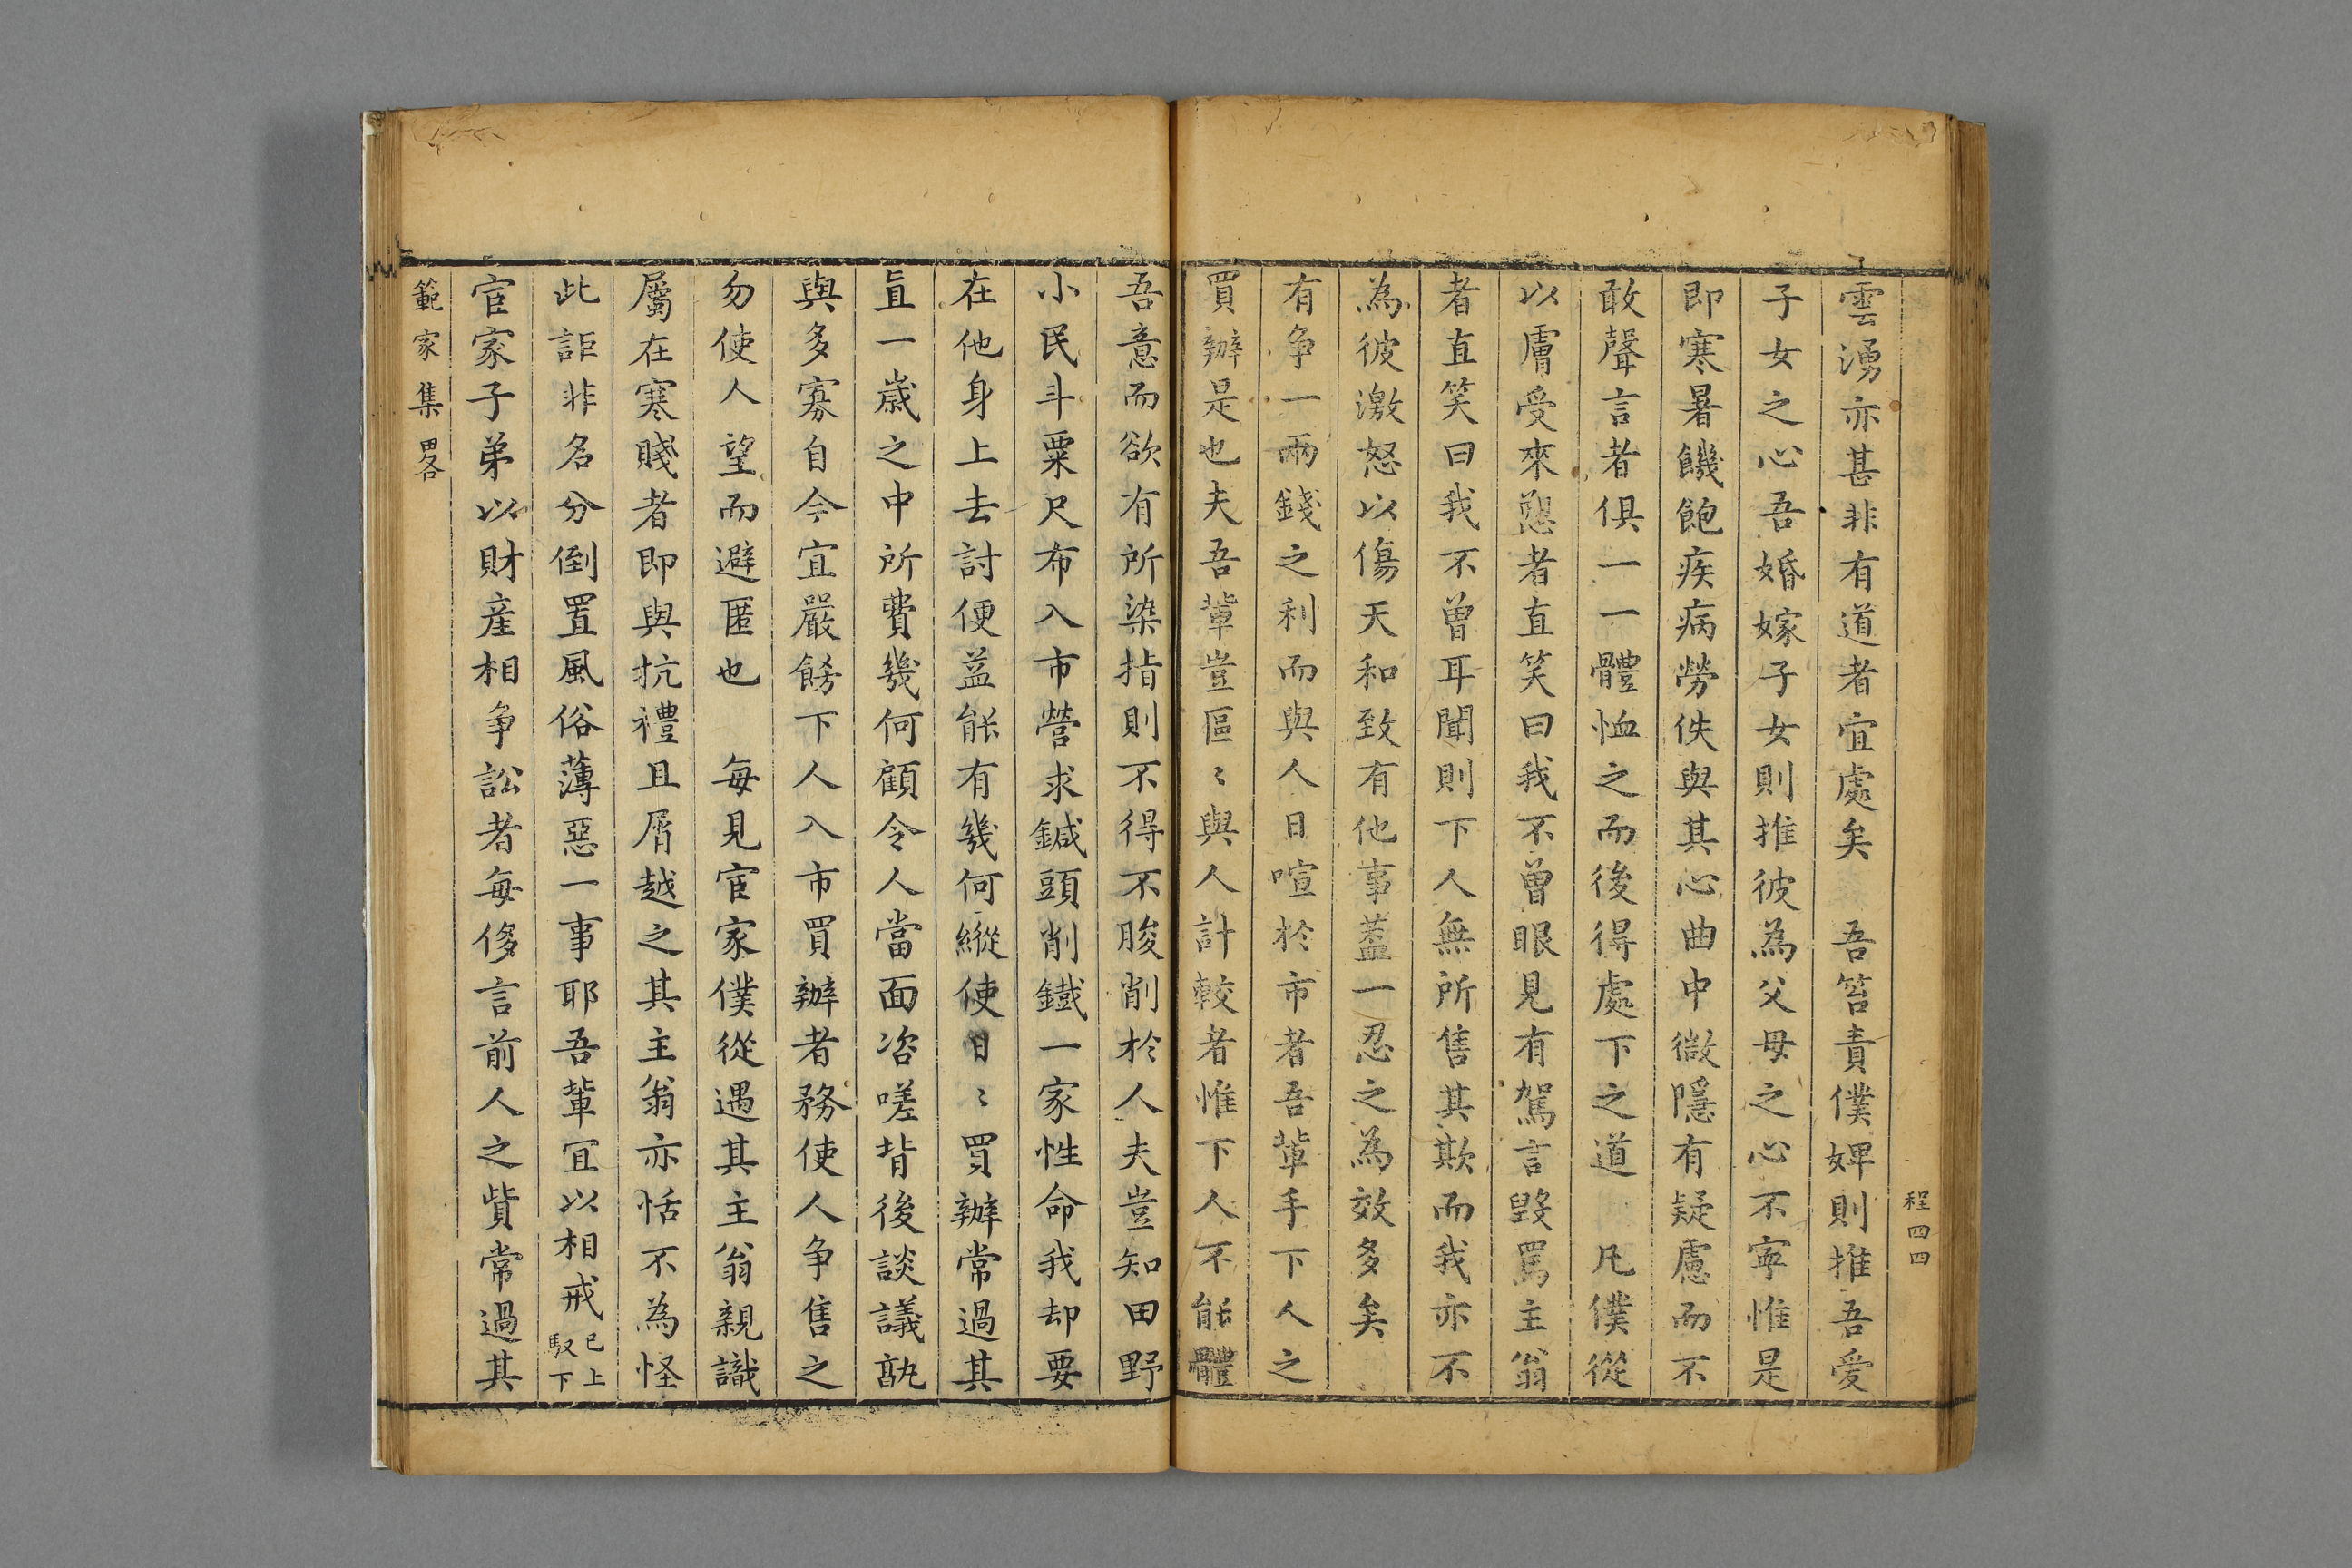 程四四
雲湧亦甚非有道者宜處矣　吾笞責僕婢則推吾愛
子女之心吾婚嫁子女則推彼為父母之心不寧惟是
即寒暑饑飽疾病勞佚與其心曲中微隱有疑慮而不
敢聲言者俱一一體恤之而後得處下之道　凡僕從
以膚受來愬者直笑曰我不曾眼見有駕言毀罵主翁
者直笑曰我不曾耳聞則下人無所售其欺而我亦不
為彼激怒以傷天和致有他事葢一忍之為效多矣
有争一兩錢之利而與人日喧於市者吾輩手下人之
買辦是也夫吾輩豈區〻與人計較者惟下人不能體
吾意而欲有所染指則不得不朘削於人夫豈知田野
小民斗粟尺布入市營求鍼頭削鐵一家性命我却要
在他身上去討便益能有幾何縱使日〻買辦常過其
直一歲之中所費幾何顧令人當面咨嗟背後談議孰
與多寡自今宜嚴餝下人入市買辦者務使人争售之
勿使人望而避匿也　每見宦家僕從遇其主翁親識
屬在寒賤者即與抗禮且屑越之其主翁亦恬不為怪
此詎非名分倒置風俗薄惡一事耶吾輩冝以相戒已上馭下
宦家子弟以財産相争訟者每侈言前人之貲常過其
範家集畧